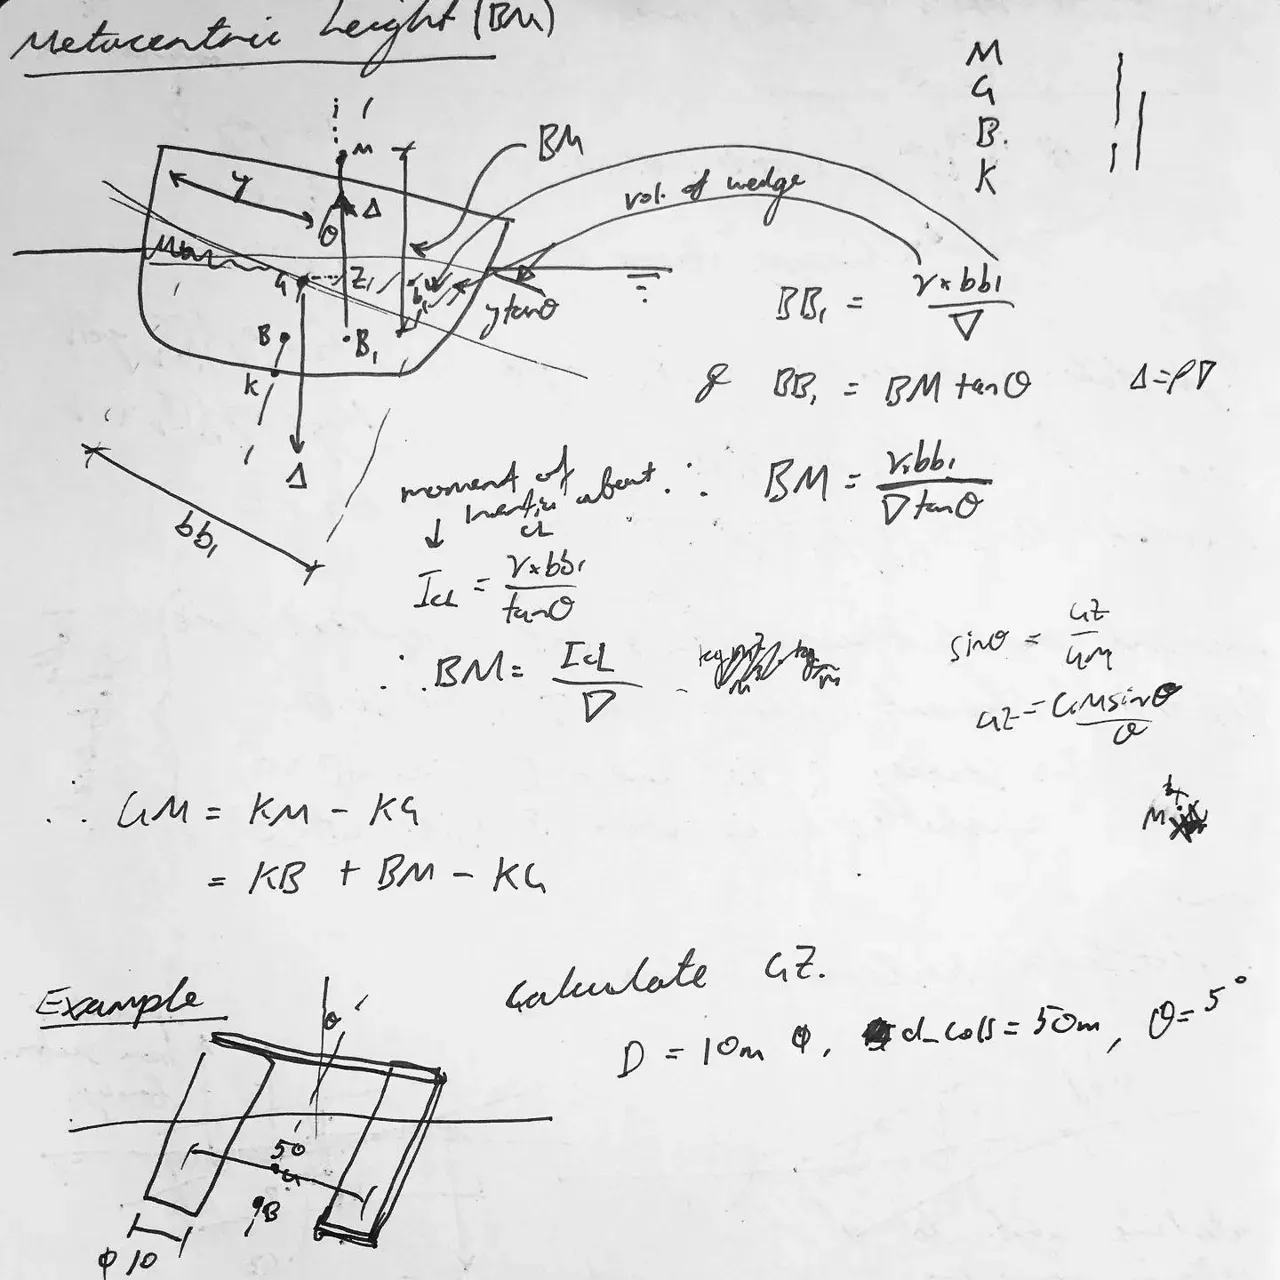 Metacentric height (BM)
M
G
B.
K
M
BM
y
vol. of wedge
Δ
θ
G
Z₁
y tanθ
B
B₁
K
Δ
bb₁
BB₁ = v × bb₁ / ∇
& BB₁ = BM tanθ
Δ = ρ∇
moment of
Inertia about
CL
∴ BM = v × bb₁ / ∇ tanθ
↓
I_CL = v × bb₁ / tanθ
∴ BM = I_CL / ∇
sinθ = GZ / GM
GZ = GM sinθ / θ
∴ GM = KM - KG
= KB + BM - KG
Example
Calculate GZ.
D = 10m ϕ, d_cols = 50m, θ = 5°
θ
50
G
B
ϕ 10